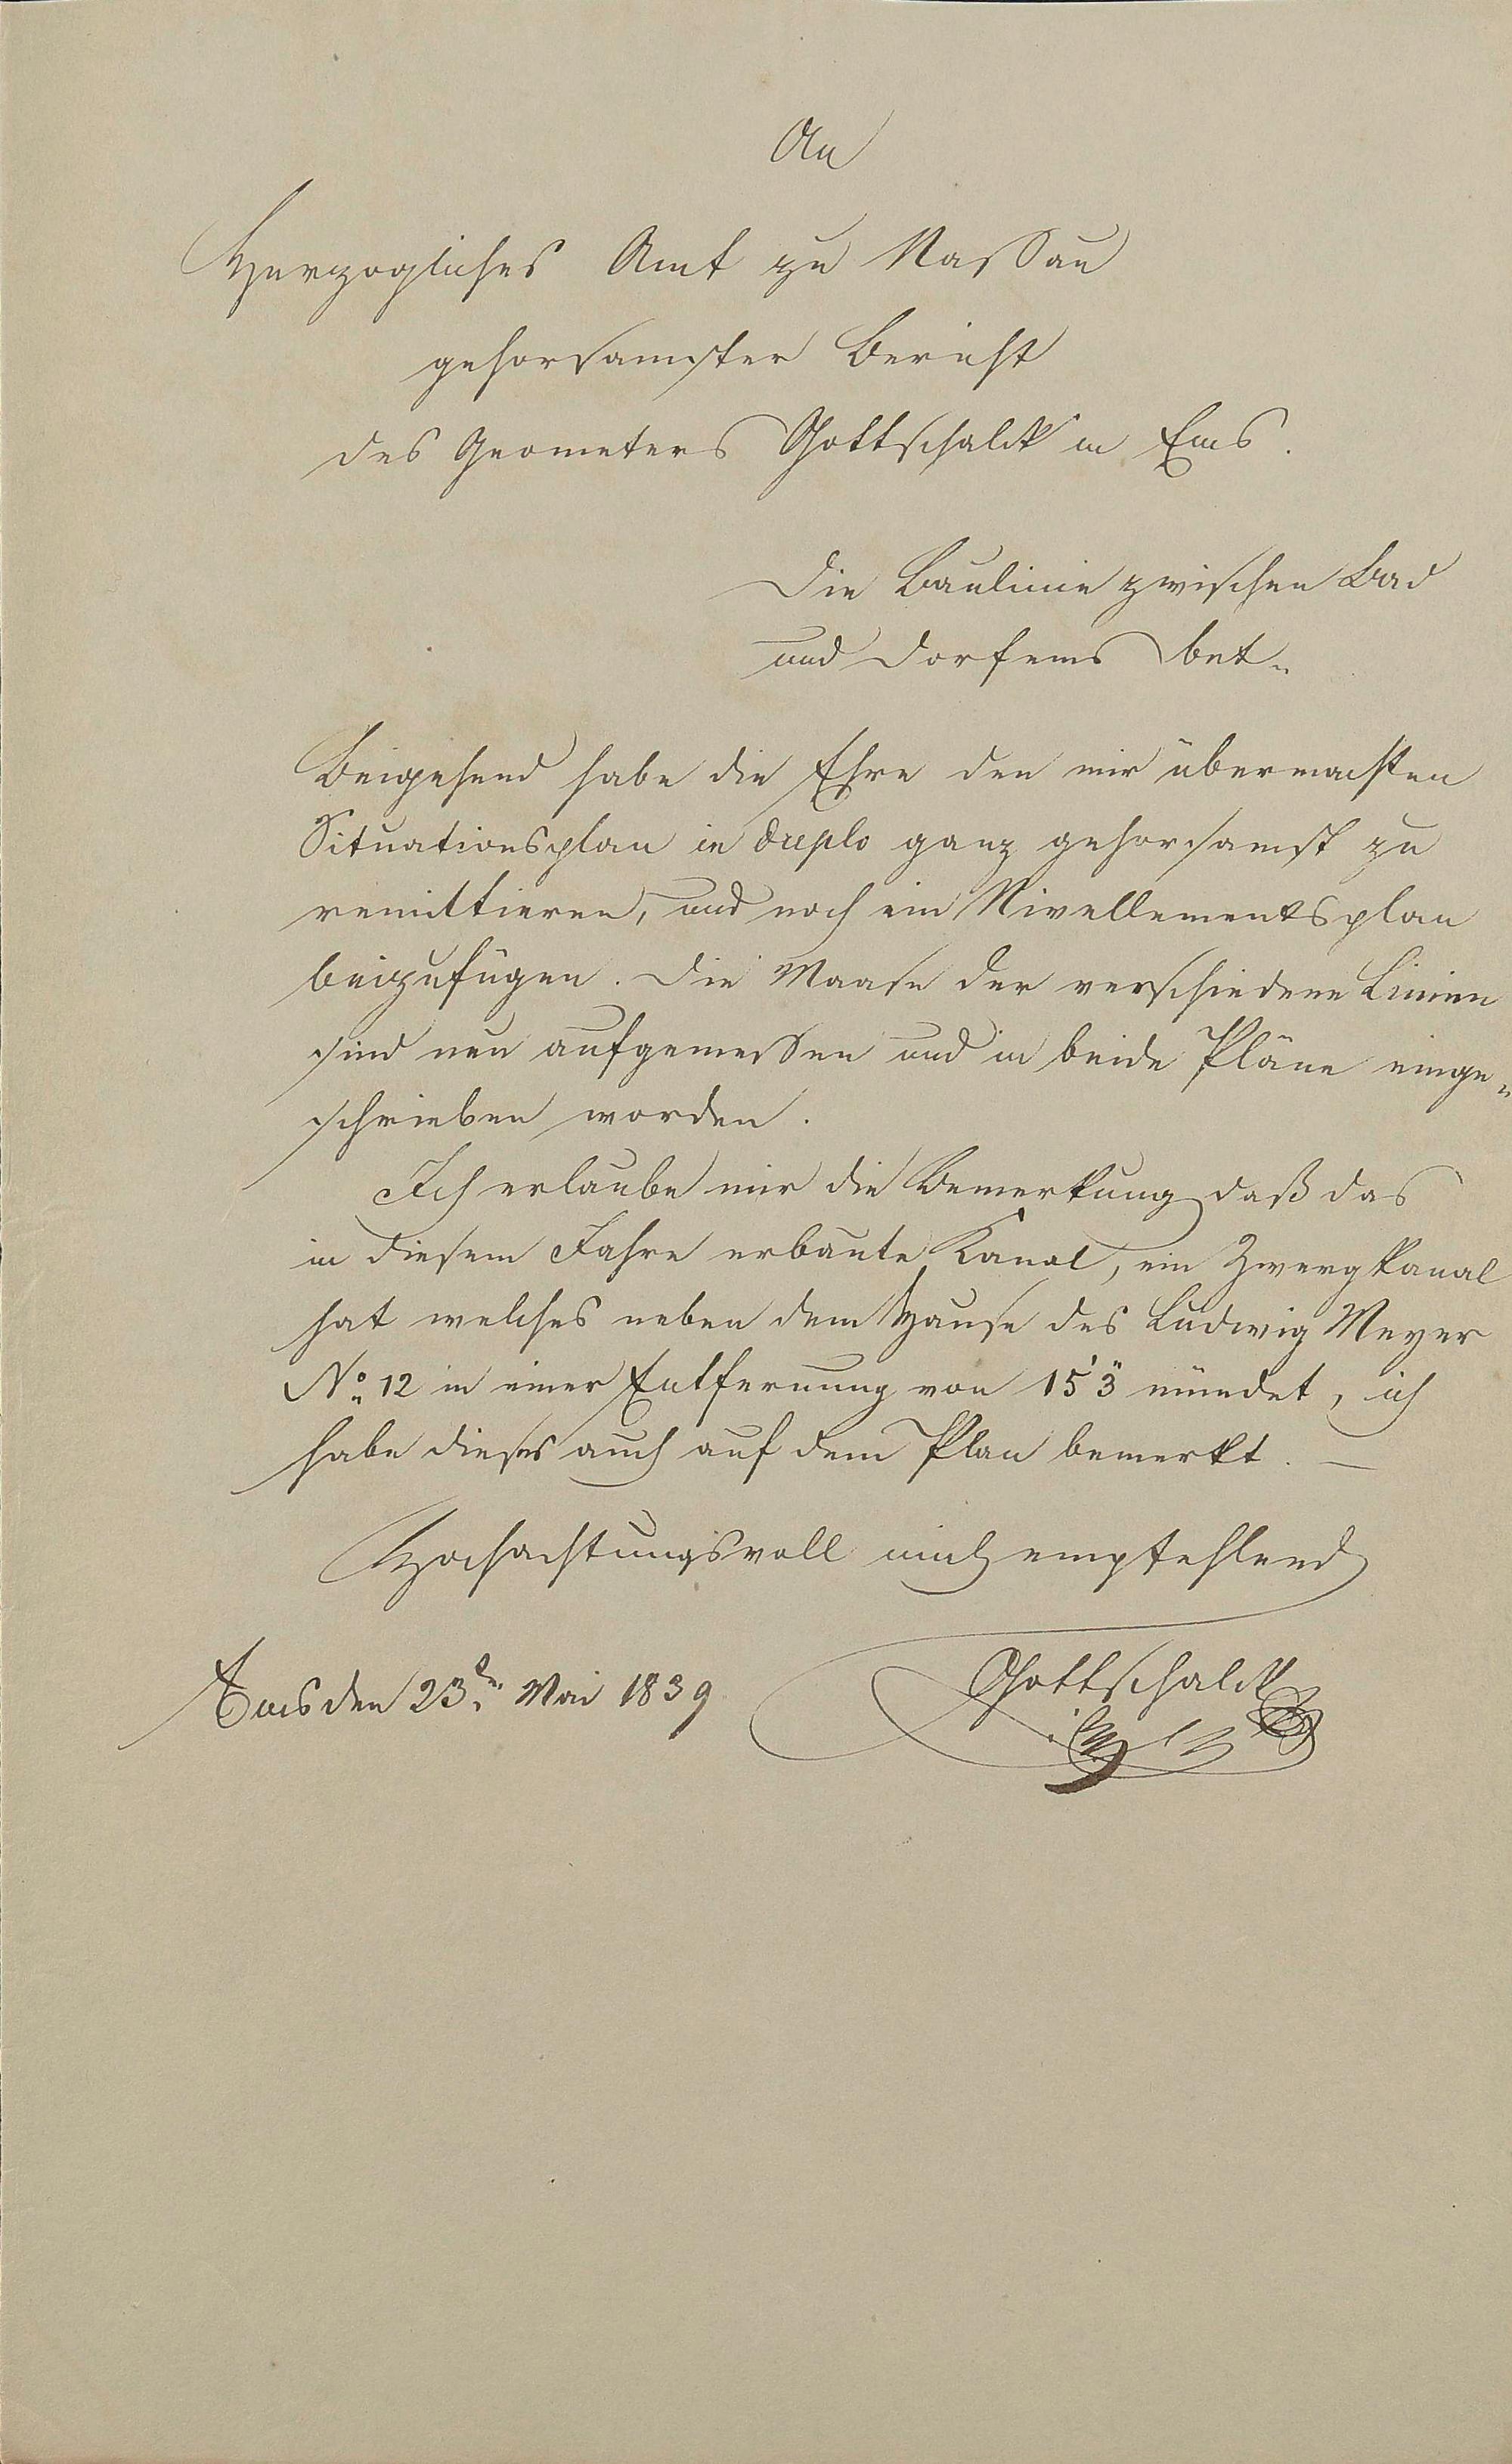 An
Herzogliches Amt zu Nassau
gehorsamster Bericht
des Geometers Gottschalck in Ems.
Die Baulinie zwischen Bad
und Dorfems bet.
Beigehend habe die Ehre den mir übermachten
Situationsplan in duplo ganz gehorsamst zu
remittieren, und noch ein Nivellementsplan
beizufügen. Die Maase der verschiedene Linien
sind neu aufgemessen und in beide Pläne einge-
schrieben worden.
Ich erlaube mir die Bemerkung daß das
in diesem Jahre erbaute Kanal, ein Zwergkanal
hat welches neben dem Hause des Ludwig Meyer
No 12 in einer Entfernung von 15' 3" mündet, ich
habe dieses auch auf dem Plan bemerkt. —
Hochachtungsvoll mich empfehlend
Ems den 23ten Mai 1839
Gottschalck